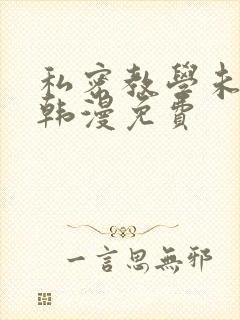 私密教學未
韩漫免費
一言思無邪